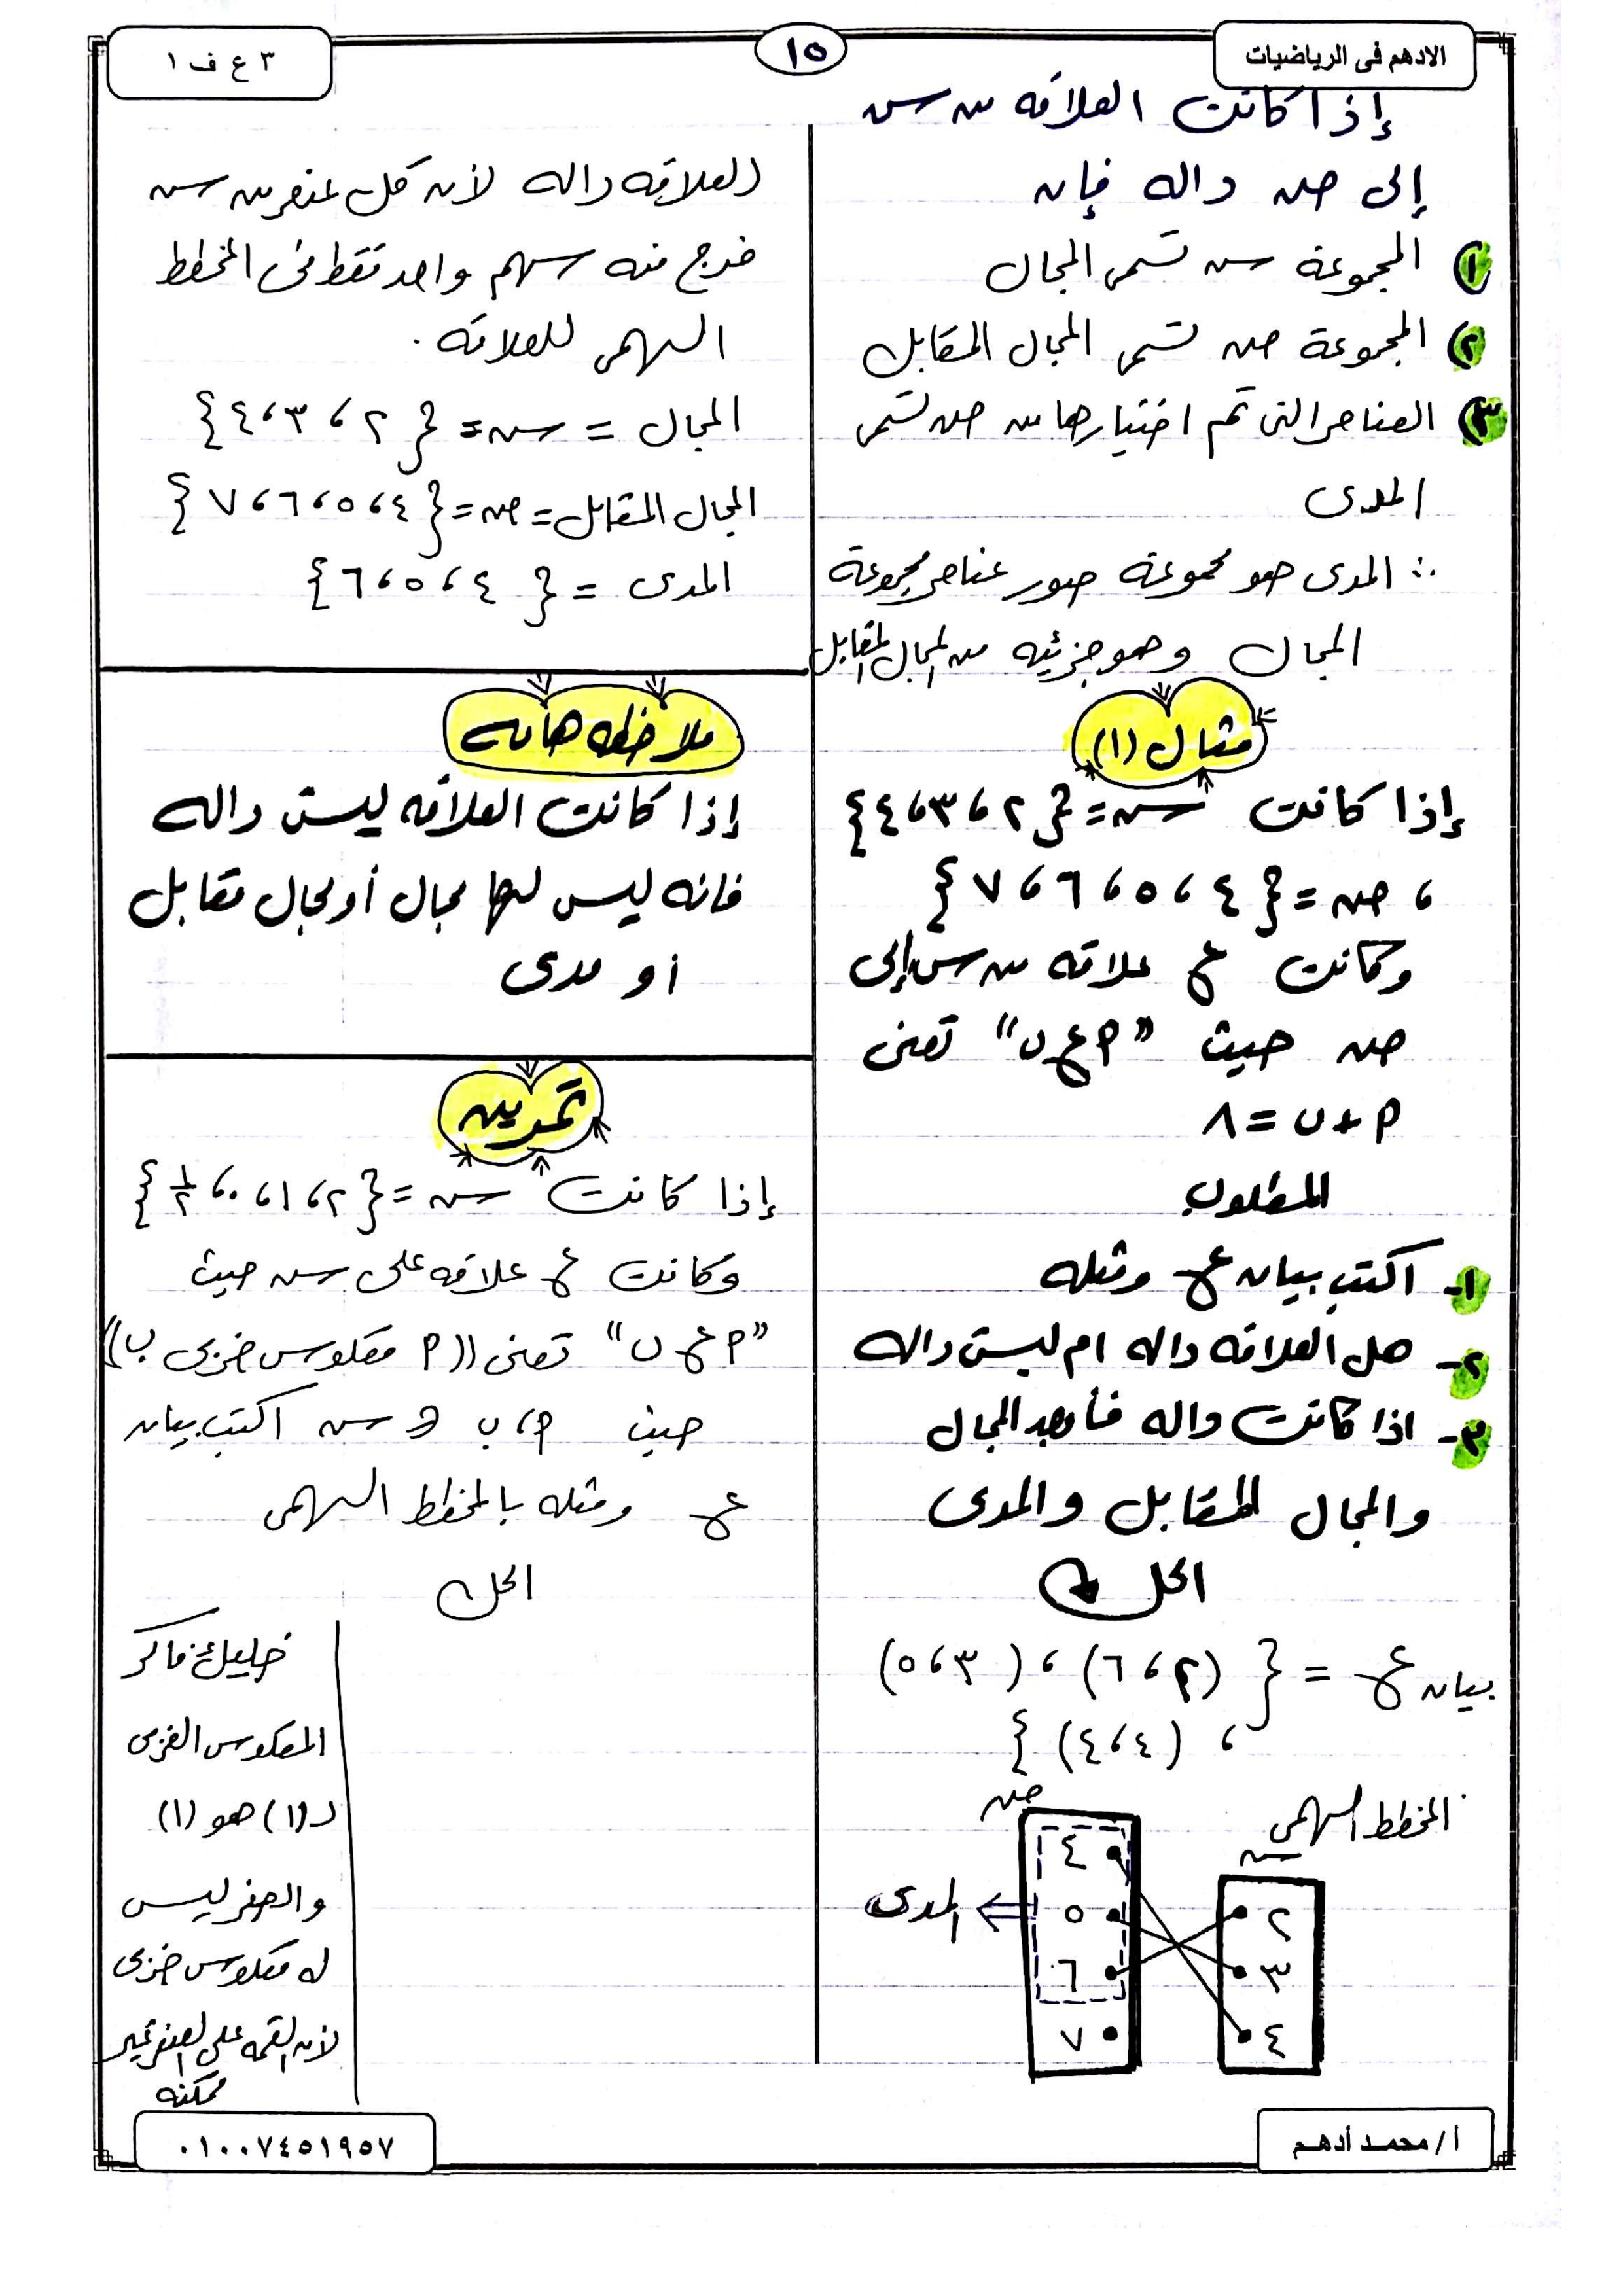 الادهم فى الرياضيات
١٥
٣ ع ف ١
إذا كانت العلاقه من س
إلى ص داله فإن
١) المجموعة س تسمى المجال
٢) المجموعة ص تسمى المجال المقابل
٣) العناصر التى تم اختيارها من ص تسمى
المدى
∴ المدى هو مجموعة صور عناصر مجموعة
المجال وهو جزئيه من المجال المقابل
مثال (١)
إذا كانت س = {٢ ، ٣ ، ٤}
، ص = {٤ ، ٥ ، ٦ ، ٧}
وكانت ع علاقه من س إلى
ص حيث "م ع ن" تعنى
م + ن = ٨
المطلوب
١- اكتب بيان ع ومثله
٢- هل العلاقه داله ام ليست داله
٣- اذا كانت داله فأوجد المجال
والمجال المقابل والمدى
الحل
بيان ع = { (٢ ، ٦) ، (٣ ، ٥)
، (٤ ، ٤) }
المخطط السهمى
س
٢
٣
٤
ص
٤
٥
٦
٧
المدى
العلاقه داله لأن كل عنصر من س
خرج منه سهم واحد فقط فى المخطط
السهمى للعلاقه .
المجال = س = {٢ ، ٣ ، ٤}
المجال المقابل = ص = {٤ ، ٥ ، ٦ ، ٧}
المدى = {٤ ، ٥ ، ٦}
ملاحظه هامه
إذا كانت العلاقه ليست داله
فانه ليس لها مجال أو مجال مقابل
أو مدى
تمرين
إذا كانت س = {٢ ، ١ ، ٠ ، ١/٢}
وكانت ع علاقه على س حيث
"م ع ن" تعنى ((م معكوس ضربى ب))
حيث م ، ب ∈ س اكتب بيان
ع ومثله بالمخطط السهمى
الحل
خليك فاكر
المعكوس الضربى
لـ (١) هو (١)
والصفر ليس
له معكوس ضربى
لأن القسمه على الصفر غير
ممكنه
أ / محمد أدهم
٠١٠٠٧٤٥١٩٥٧